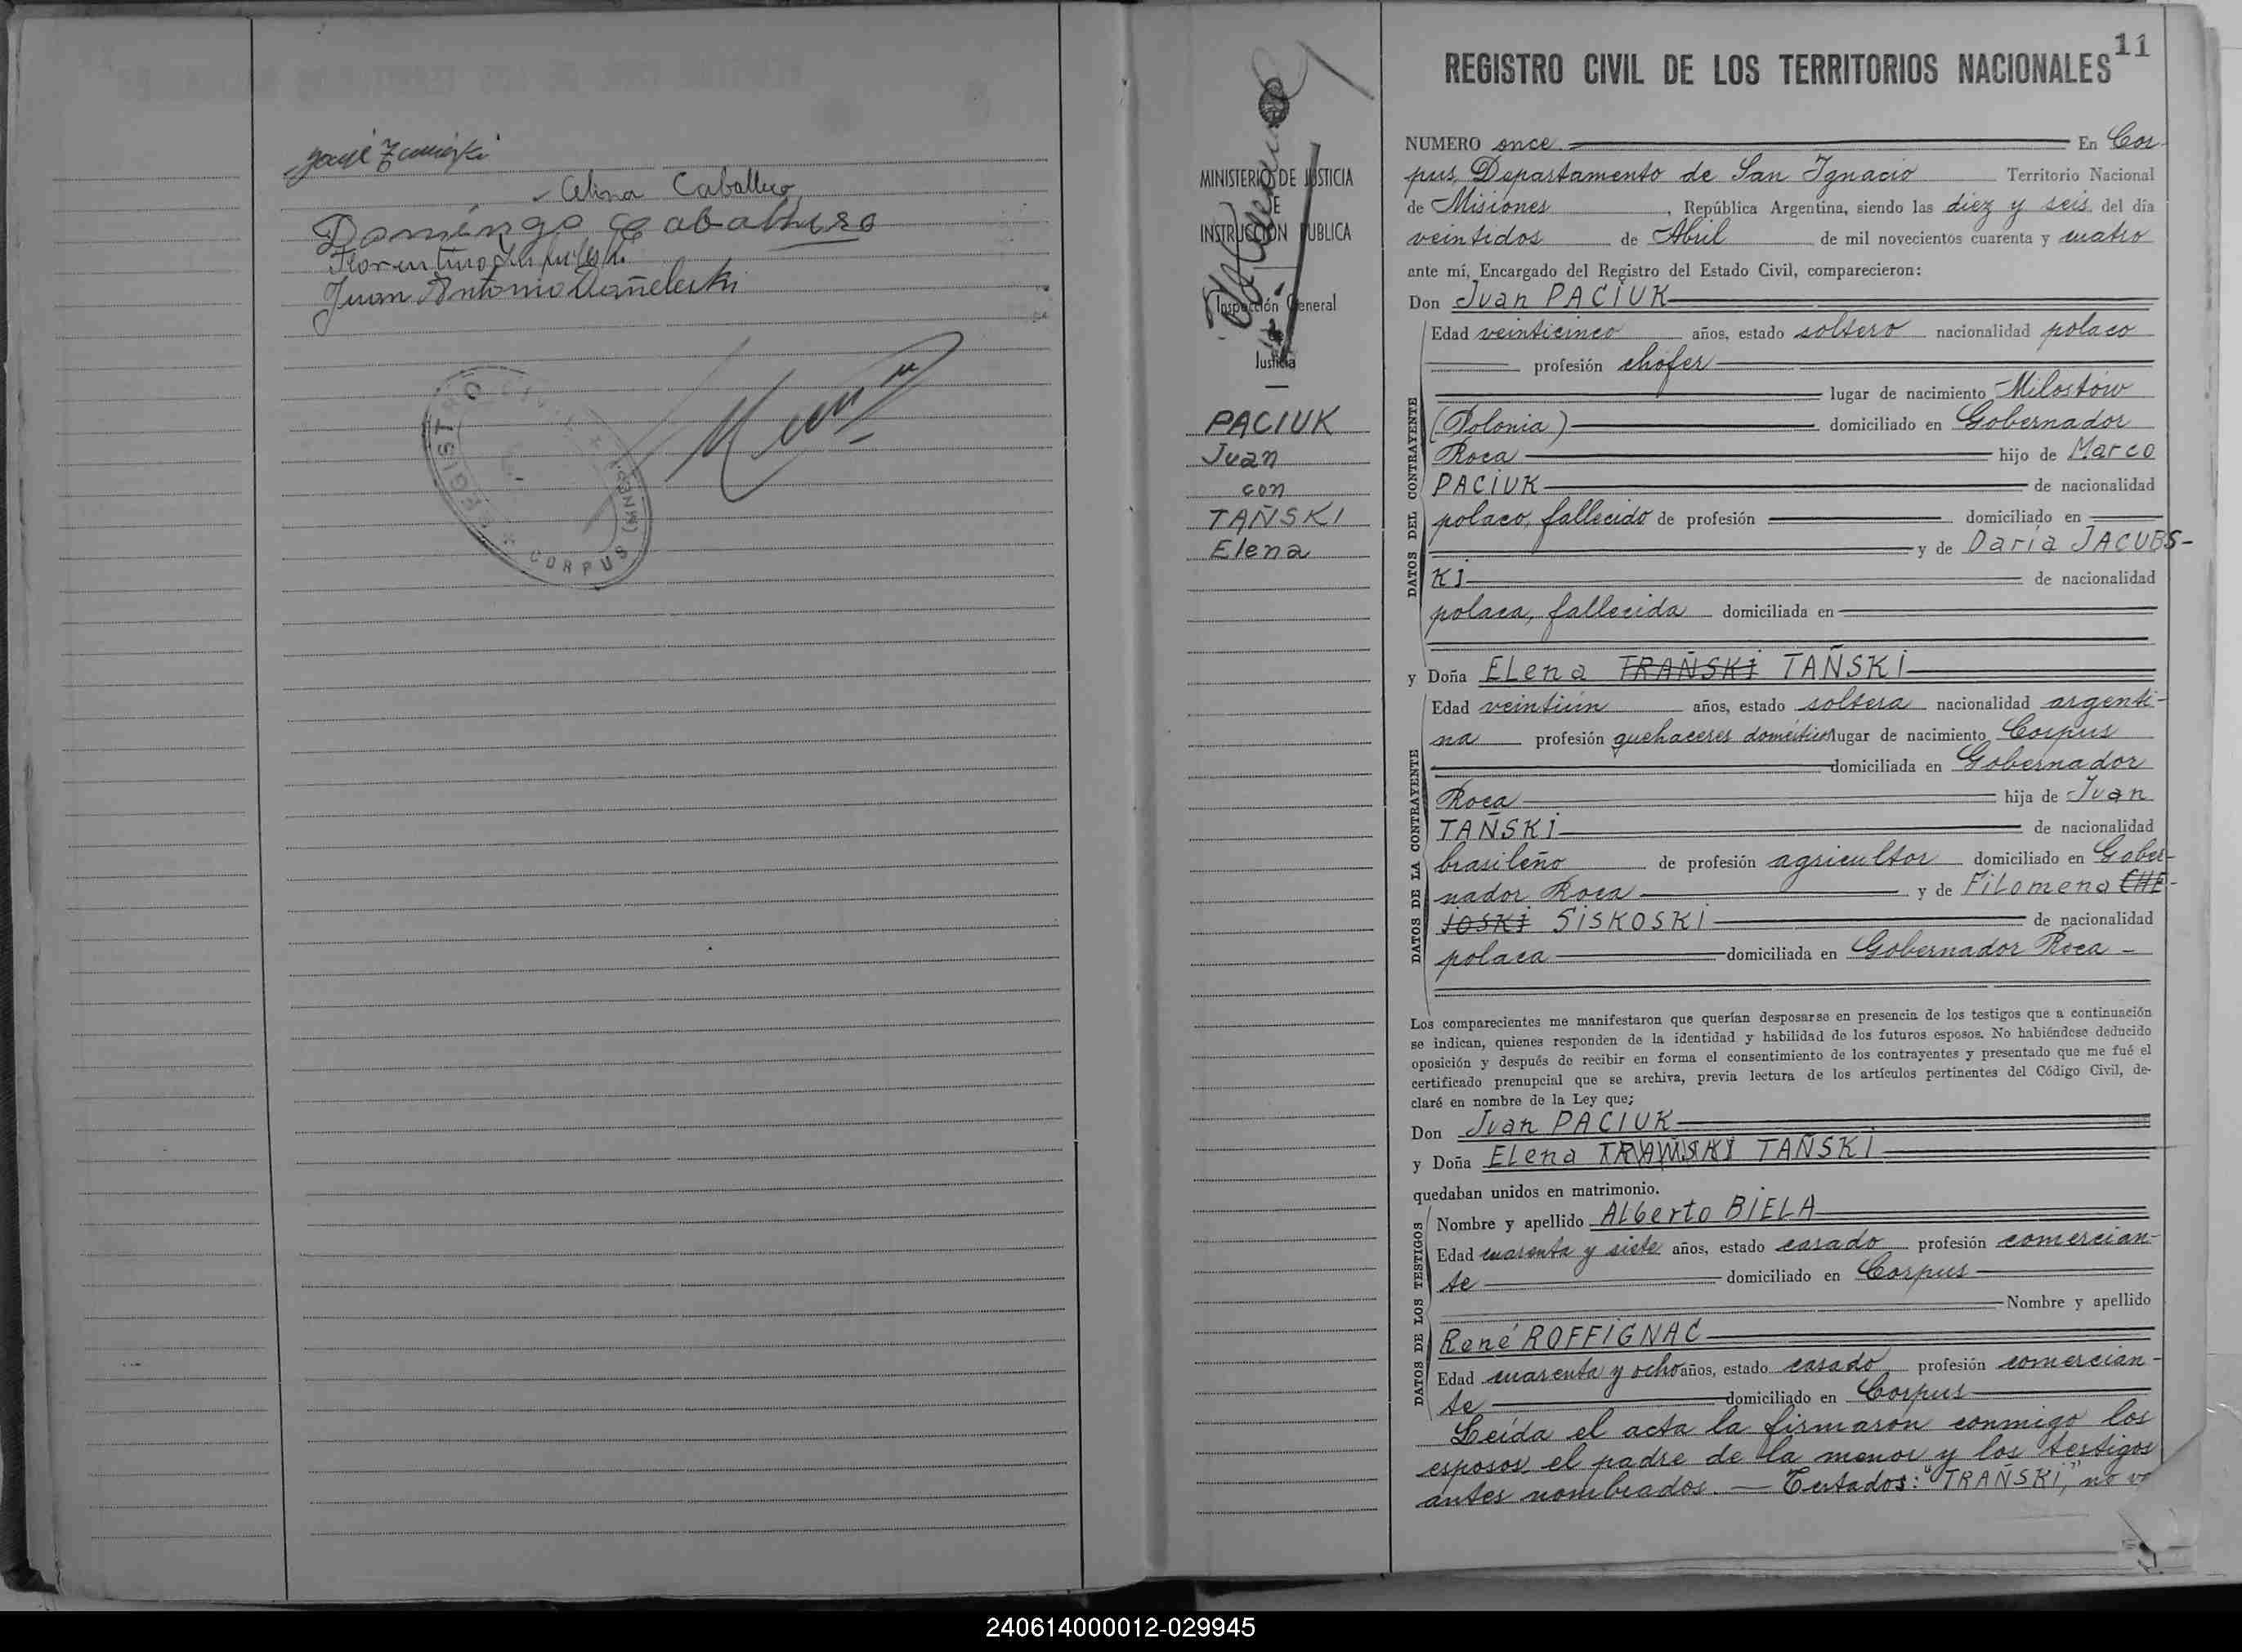 José
Celina Caballero
Domingo Caballero
Florentino
Juan Antonio
REGISTRO CIVIL
CORPUS
(MNES.)
11
REGISTRO CIVIL DE LOS TERRITORIOS NACIONALES
MINISTERIO DE JUSTICIA
E
INSTRUCCIÓN PUBLICA
Inspección General
de
Justicia
PACIUK
Juan
con
TAÑSKI
Elena
NUMERO once En Cor-
pus, Departamento de San Ignacio Territorio Nacional
de Misiones, República Argentina, siendo las diez y seis del día
veintidos de Abril de mil novecientos cuarenta y cuatro
ante mí, Encargado del Registro del Estado Civil, comparecieron:
Don Juan PACIUK
DATOS DEL CONTRAYENTE
Edad veinticinco años, estado soltero nacionalidad polaco
profesión chofer
lugar de nacimiento Milostów
(Polonia) domiciliado en Gobernador
Roca hijo de Marco
PACIUK de nacionalidad
polaco, fallecido de profesión domiciliado en
y de Daría JACUBS-
KI de nacionalidad
polaca, fallecida domiciliada en
y Doña Elena TRAÑSKI TAÑSKI
DATOS DE LA CONTRAYENTE
Edad veintiún años, estado soltera nacionalidad argenti-
na profesión quehaceres domésticos lugar de nacimiento Corpus
domiciliada en Gobernador
Roca hija de Juan
TAÑSKI de nacionalidad
brasileño de profesión agricultor domiciliado en Gober-
nador Roca y de Filomena CHE-
IOSKI SISKOSKI de nacionalidad
polaca domiciliada en Gobernador Roca -
Los comparecientes me manifestaron que querían desposarse en presencia de los testigos que a continuación
se indican, quienes responden de la identidad y habilidad de los futuros esposos. No habiéndose deducido
oposición y después de recibir en forma el consentimiento de los contrayentes y presentado que me fué el
certificado prenupcial que se archiva, previa lectura de los artículos pertinentes del Código Civil, de-
claré en nombre de la Ley que;
Don Juan PACIUK
y Doña Elena TAÑSKI
quedaban unidos en matrimonio.
DATOS DE LOS TESTIGOS
Nombre y apellido Alberto BIELA
Edad cuarenta y siete años, estado casado profesión comercian-
te domiciliado en Corpus
Nombre y apellido
René ROFFIGNAC
Edad cuarenta y ocho años, estado casado profesión comercian-
te domiciliado en Corpus
Leída el acta la firmaron conmigo los
esposos, el padre de la menor y los testigos
antes nombrados. — Testados: "TRAÑSKI," no v
240614000012-029945